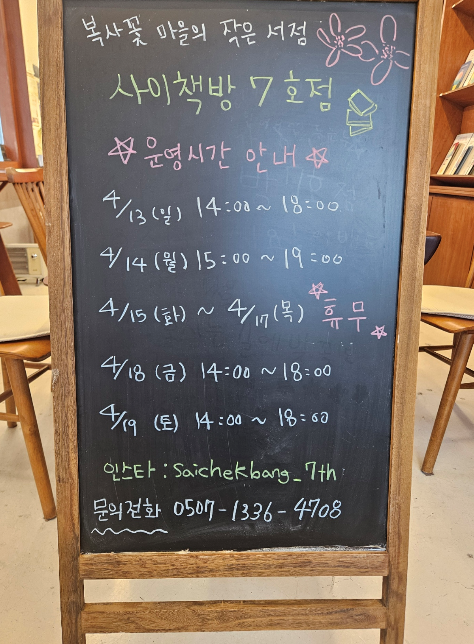 복사꽃 마을의 작은 서점
사이책방 7호점
☆ 운영시간 안내 ☆
4/13 (일) 14:00 ~ 18:00
4/14 (월) 15:00 ~ 19:00
4/15 (화) ~ 4/17 (목) 휴무
4/18 (금) 14:00 ~ 18:00
4/19 (토) 14:00 ~ 18:00
인스타 : Saichekbang_7th
문의전화 0507-1336-4708